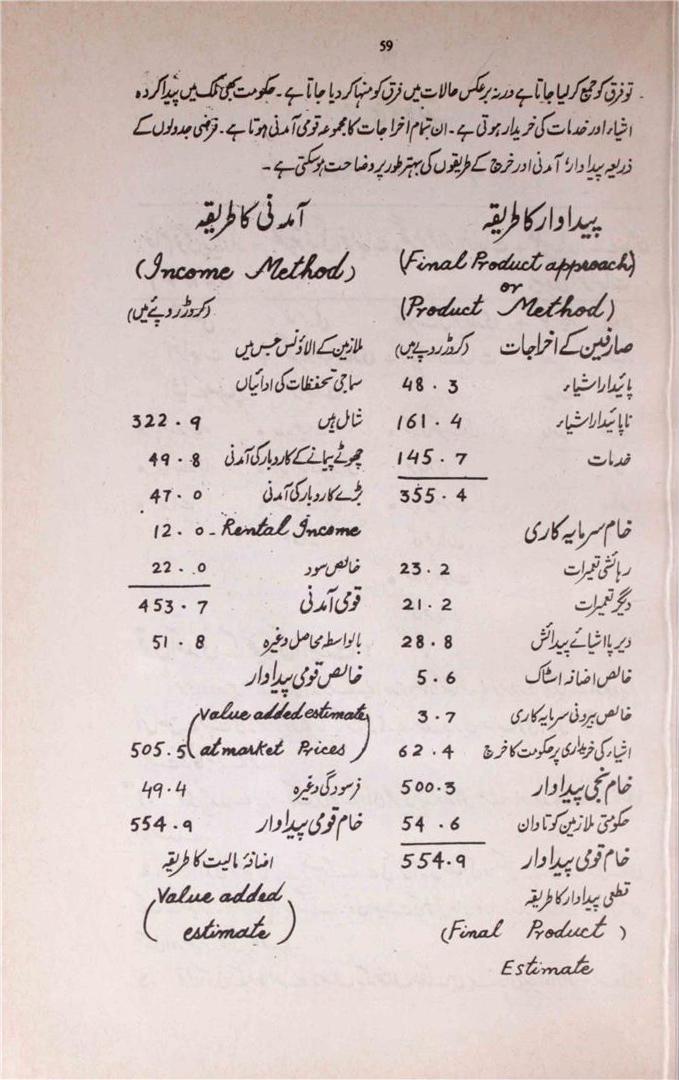 59
تو فرق کو جمع کر لیا جاتا ہے ورنہ برعکس حالات میں فرق کو منہا کر دیا جاتا ہے۔ حکومت بھی ملک میں پیدا کردہ
اشیاء اور خدمات کی خریدار ہوتی ہے۔ ان تمام اخراجات کا مجموعہ قومی آمدنی ہوتا ہے۔ فرضی جدولوں کے
ذریعہ پیداوار، آمدنی اور خرچ کے طریقوں کی بہتر طور پر وضاحت ہو سکتی ہے۔
پیداوار کا طریقہ
(Final Product approach)
or
(Product Method)
صارفین کے اخراجات (کروڑ روپے میں)
پائیدار اشیاء 48.3
ناپائیدار اشیاء 161.4
خدمات 145.7
355.4
خام سرمایہ کاری
رہائشی تعمیرات 23.2
دیگر تعمیرات 21.2
دیرپا اشیائے پیدائش 28.8
خالص اضافہ اسٹاک 5.6
خالص بیرونی سرمایہ کاری 3.7
اشیاء کی خریداری پر حکومت کا خرچ 62.4
خام نجی پیداوار 500.3
حکومتی ملازمین کو تاوان 54.6
خام قومی پیداوار 554.9
قطعی پیداوار کا طریقہ
(Final Product)
Estimate
آمدنی کا طریقہ
(Income Method)
(کروڑ روپے میں)
ملازمین کے الاؤنس جس میں
سماجی تحفظات کی ادائیاں
شامل ہیں 322.9
چھوٹے پیمانے کے کاروبار کی آمدنی 49.8
بڑے کاروبار کی آمدنی 47.0
Rental Income 12.0
خالص سود 22.0
قومی آمدنی 453.7
بالواسطہ محاصل وغیرہ 51.8
خالص قومی پیداوار
(Value added estimate
at market Prices) 505.5
فرسودگی وغیرہ 49.4
خام قومی پیداوار 554.9
اضافۂ مالیت کا طریقہ
(Value added
estimate)